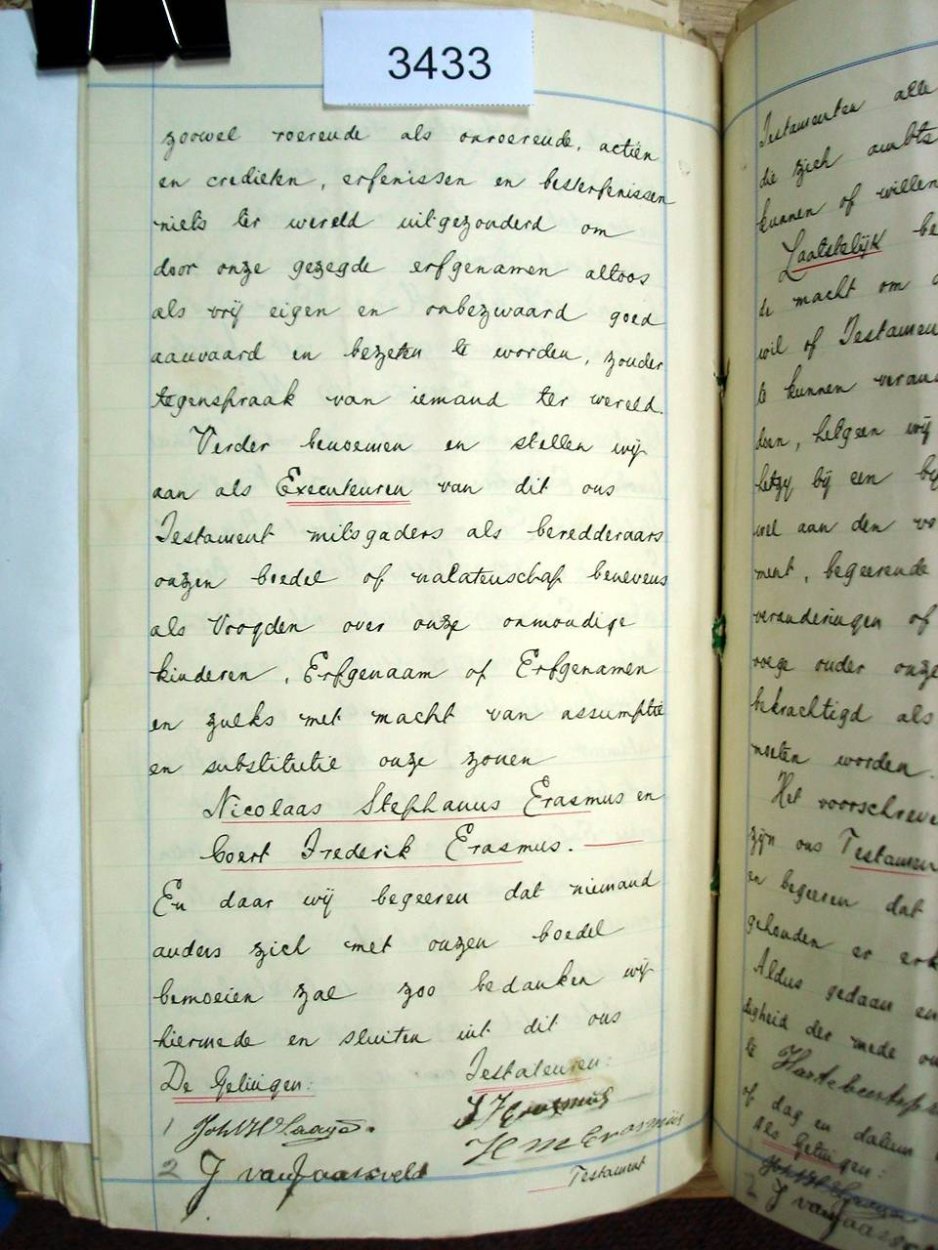 3433
zoowel roerende als onroerende, actien
en credieten, erfenissen en besterfenissen
niets ter wereld uitgezonderd om
door onze gezegde erfgenamen altoos
als vrij eigen en onbezwaard goed
aanvaard en bezeten te worden, zonder
tegenspraak van iemand ter wereld.
Verder benoemen en stellen wij
aan als Executeuren van dit ons
Testament mitsgaders als beredderaars
onzen boedel of nalatenschap benevens
als Voogden over onze onmondige
kinderen, Erfgenaam of Erfgenamen
en zulks met macht van assumptie
en substitutie onze zonen
Nicolaas Stephanus Erasmus en
Coert Frederik Erasmus.
En daar wij begeeren dat niemand
anders zich met onzen boedel
bemoeien zal zoo bedanken wij
hiermede en sluiten uit dit ons
De Getuigen: Testateuren:
1 Erasmus
H M Erasmus
2 J van Jaarsveld
Testament
Testamenten alle
die zich ambts
kunnen of willen
Laatstelijk be
de macht om
wil of Testamen
te kunnen veran
doen, hetgeen wij
hetzy bij een
wel aan den vo
ment, begeerende
veranderingen of
onder onze
bekrachtigd als
moeten worden.
Het voorschreve
zijn ons Testamen
en begeeren dat
gehouden er erk
Aldus gedaan en
digheid der mede on
te Hartebeestf
of dag en datum
Als Getuigen:
2 J van Jaarsv